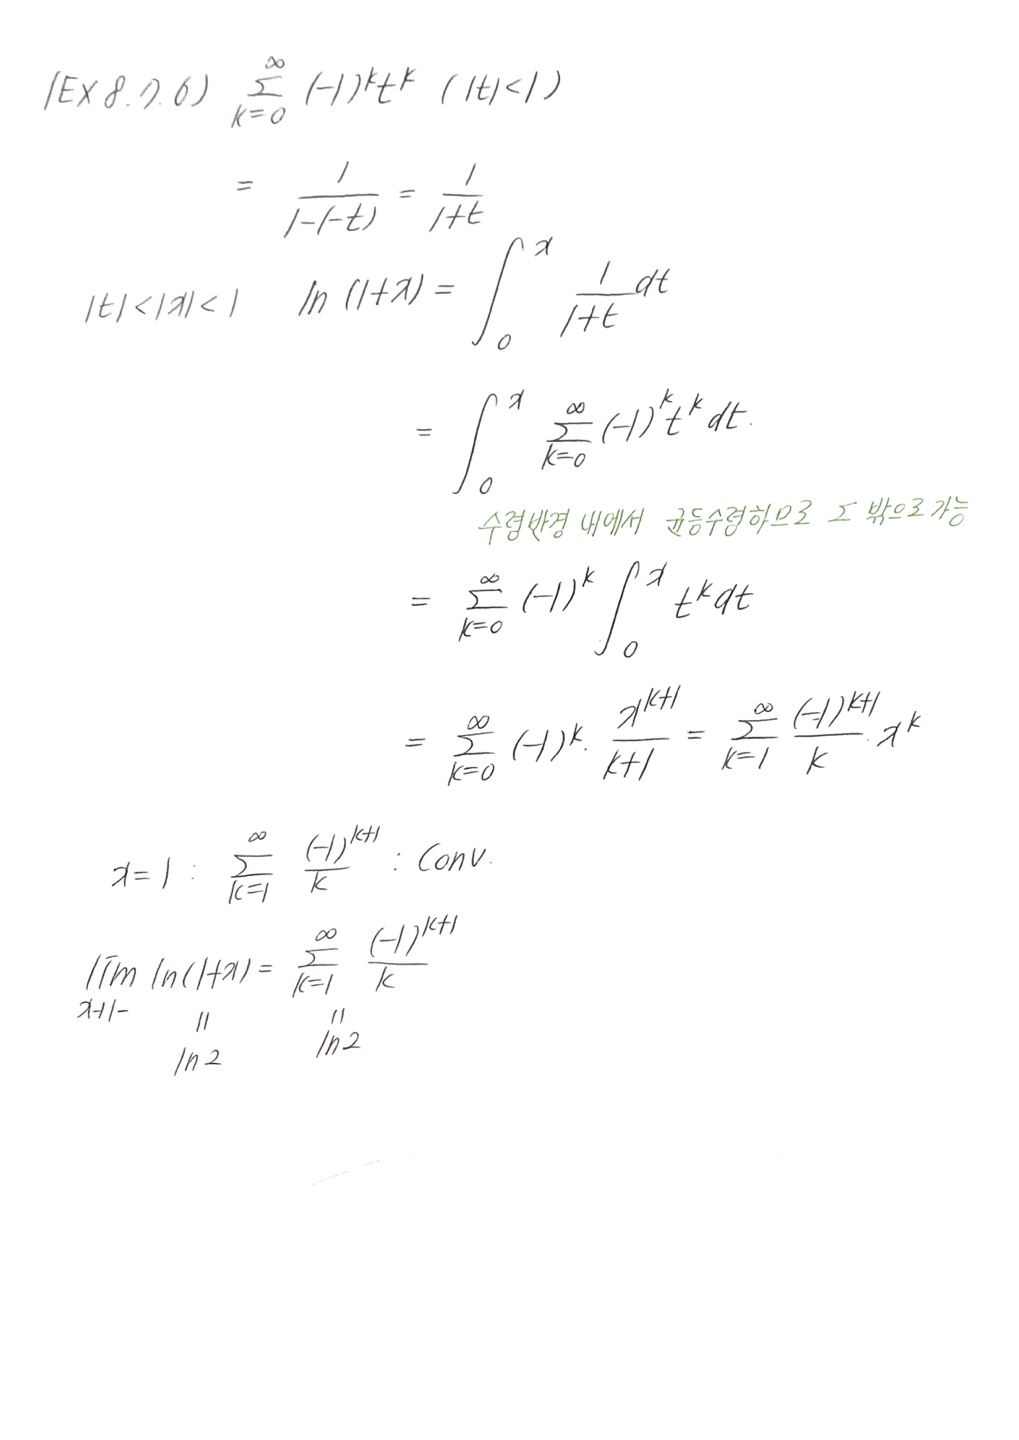 (EX 8.7.6) ∞ Σ k=0 (-1)^k t^k (|t|<1)
= 1/(1-(-t)) = 1/(1+t)
|t|<|x|<1 ln (1+x) = ∫_0^x 1/(1+t) dt
= ∫_0^x Σ_{k=0}^∞ (-1)^k t^k dt.
수렴반경 내에서 균등수렴하므로 Σ 밖으로 가능
= Σ_{k=0}^∞ (-1)^k ∫_0^x t^k dt
= Σ_{k=0}^∞ (-1)^k · x^{k+1}/(k+1) = Σ_{k=1}^∞ (-1)^{k+1}/k · x^k
x=1 : Σ_{k=1}^∞ (-1)^{k+1}/k : Conv.
lim_{x→1-} ln(1+x) = Σ_{k=1}^∞ (-1)^{k+1}/k
|| ||
ln2 ln2